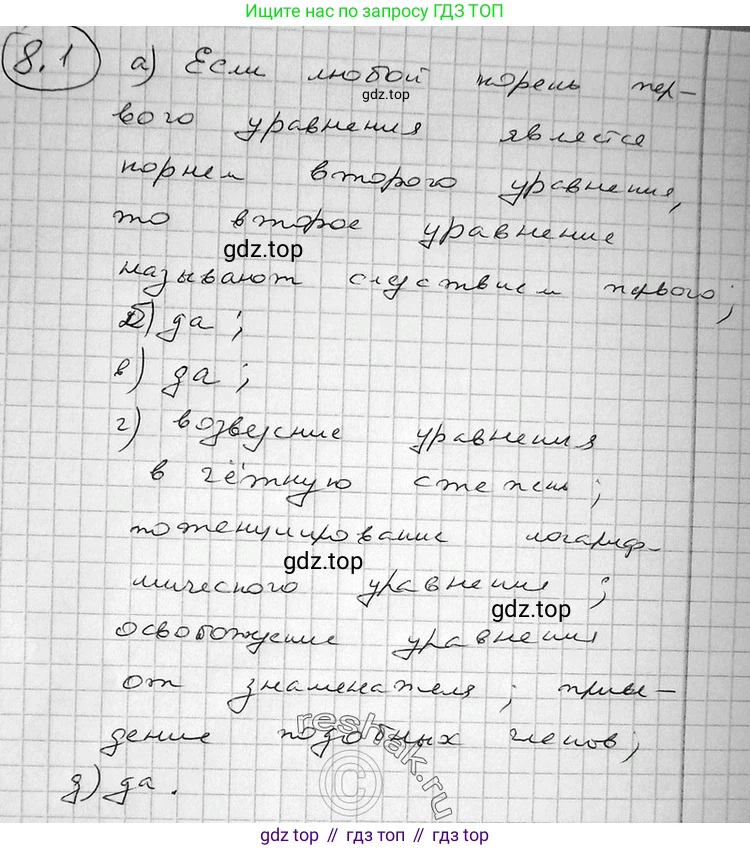 Ищите нас по запросу ГДЗ ТОП
8.1 а) Если любой корень пер-
gdz.top
вого уравнения является
корнем второго уравнения,
то второе уравнение
gdz.top
называют следствием первого;
б) да;
в) да;
г) возведение уравнения
в чётную степень;
потенцирование логариф-
gdz.top
мического уравнения;
gdz.top
освобождение уравнения
от знаменателя; приве-
reshak.ru
дение подобных членов;
©
д) да.
gdz.top // гдз топ // gdz.top